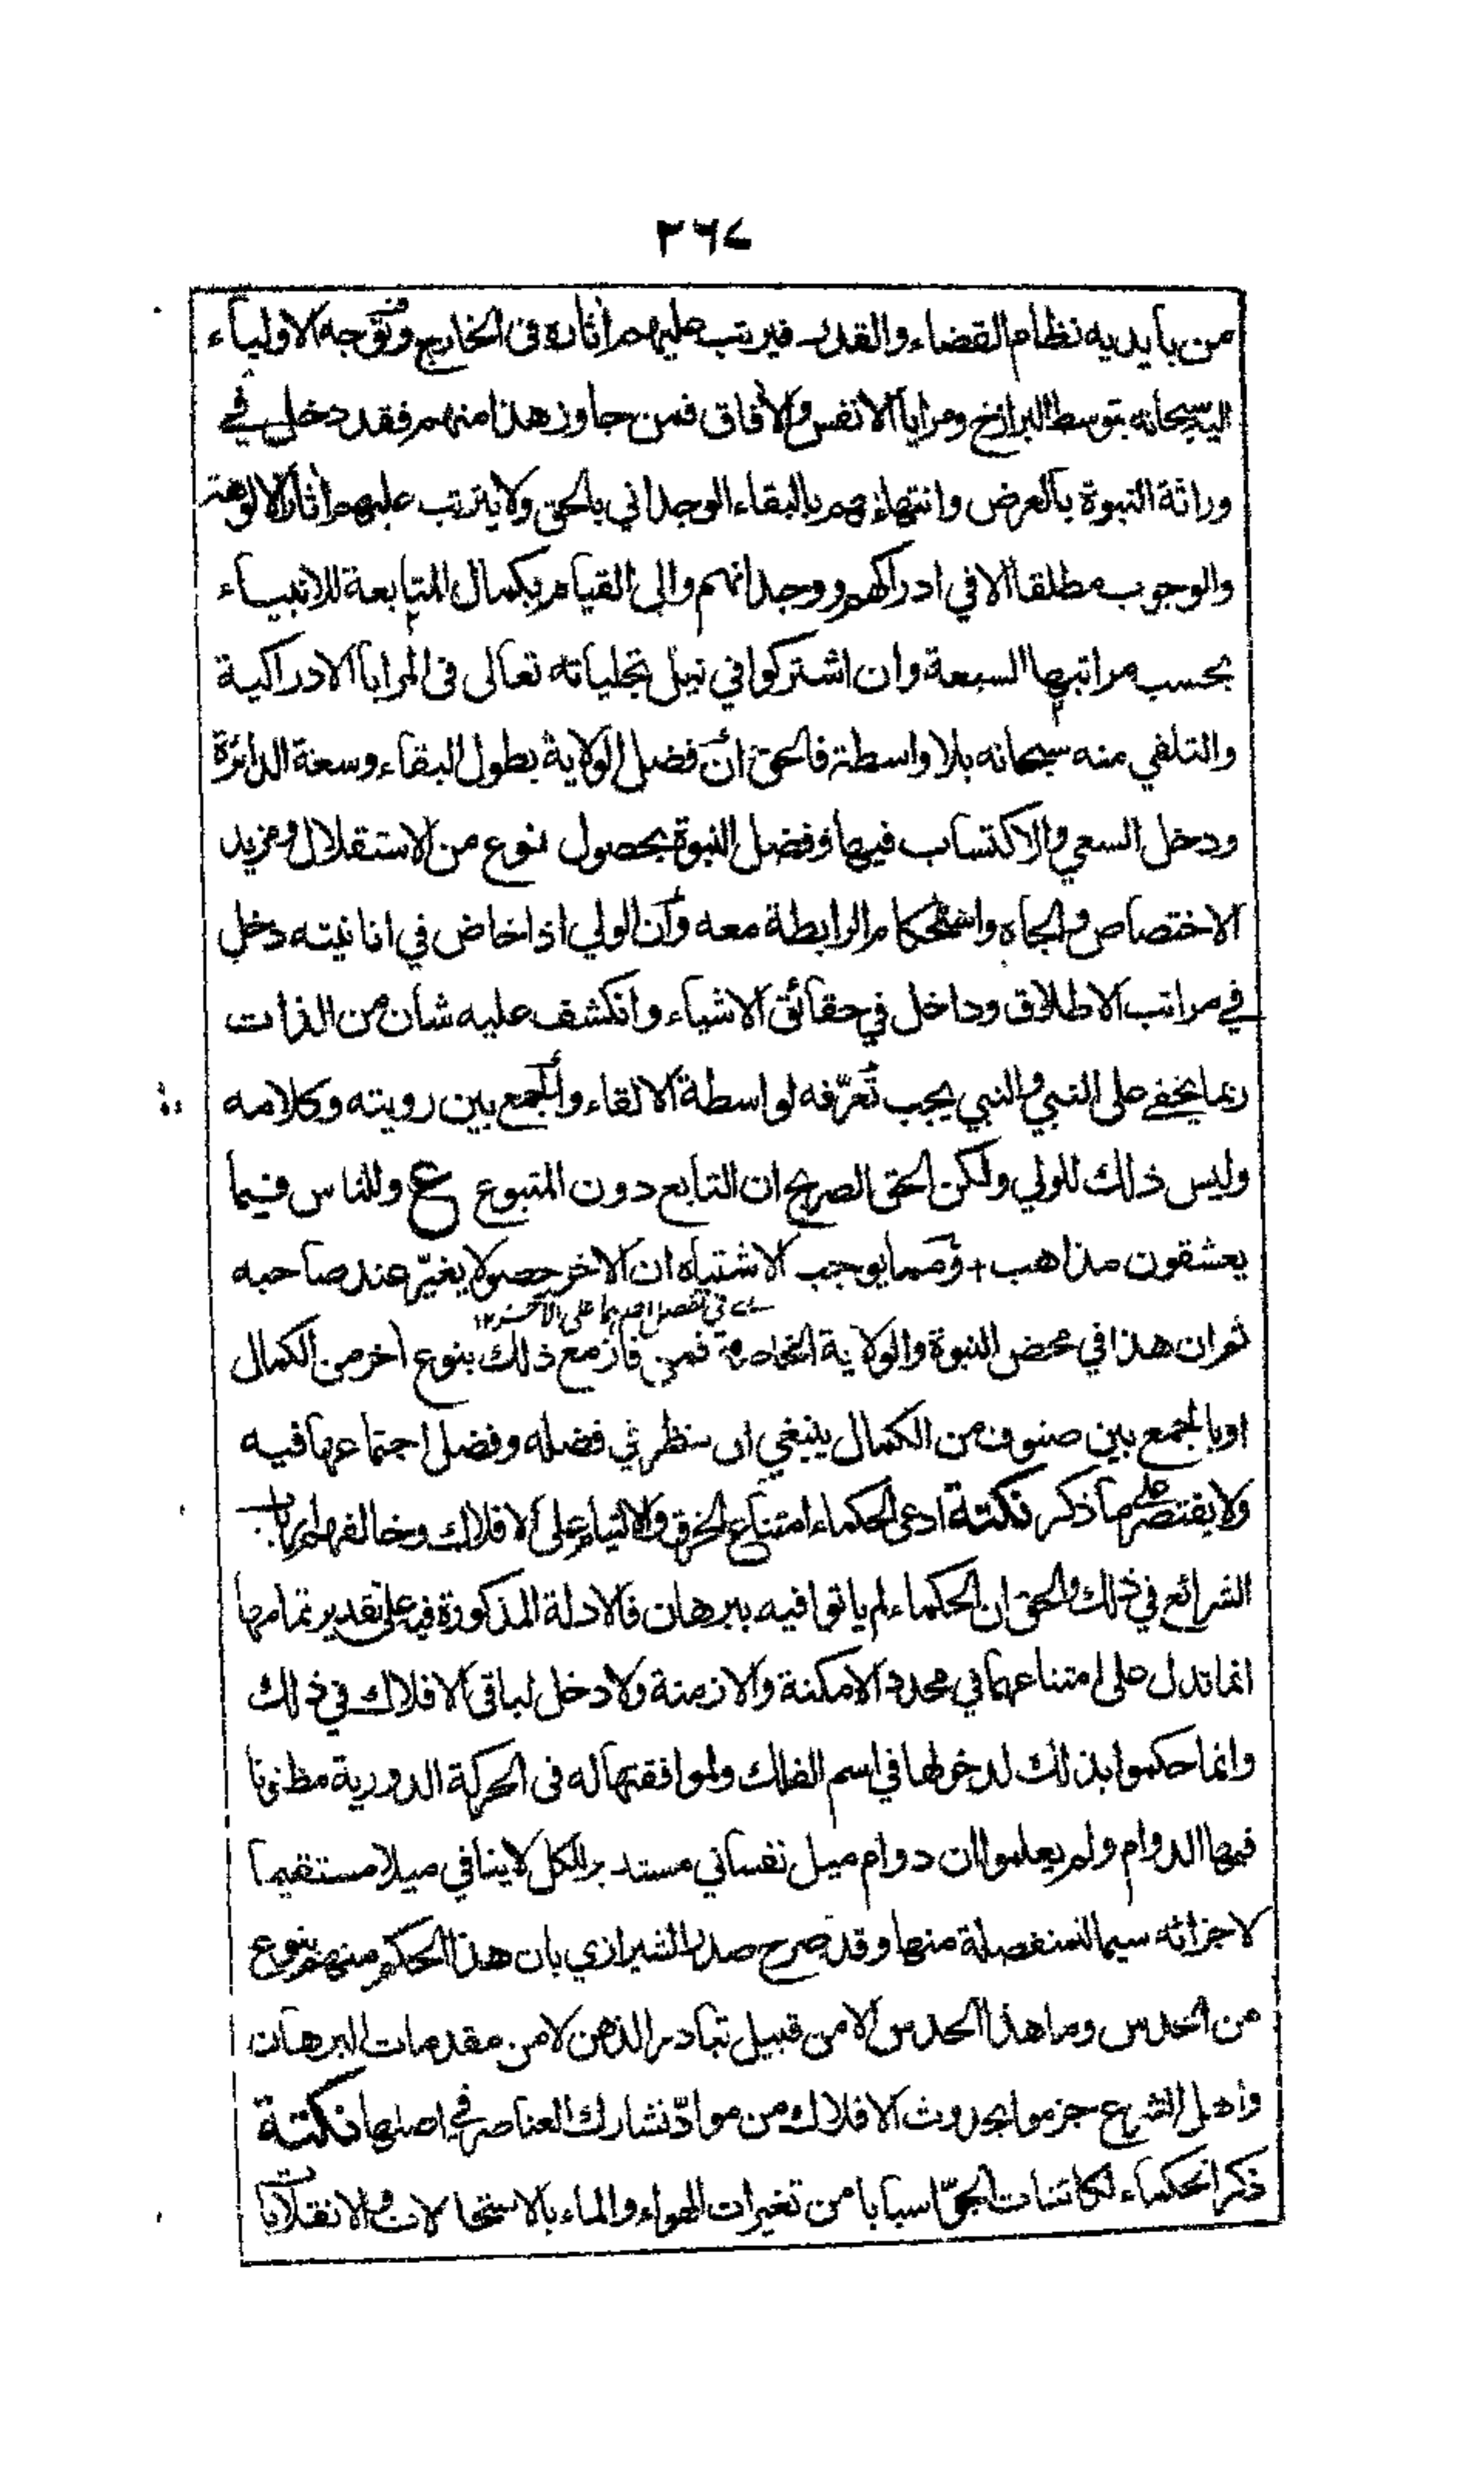 ٣٦٧
من بأيديه نظام القضاء والقدر فيرتب عليهم اثاره فى الخارج وتوجه الاولياء
اليه سبحانه بتوسط البرازخ ومرايا الانفس والأفاق فمن جاوز هذا منهم فقد دخل في
وراثة النبوة بالعرض وانتهاؤهم بالبقاء الوجداني بالحق ولا يترتب عليهم اثار الالوهية
والوجوب مطلقا الا في ادراكهم ووجدانهم والى القيام بكمال المتابعة للانبياء
بحسب مراتبها السبعة وان اشتركوا في نيل تجلياته تعالى فى المرايا الادراكية
والتلقي منه سبحانه بلا واسطة فالحق ان فضل الولاية بطول البقاء وسعة الدائرة
ودخل السعي والاكتساب فيها وفضل النبوة بحصول نوع من الاستقلال ومزيد
الاختصاص والجاه واستحكام الرابطة معه وان الولي اذا خاض في انانيته دخل
في مراتب الاطلاق وداخل في حقائق الاشياء وانكشف عليه شان من الذات
ربما يخفى على النبي والنبي يجب تعرّفه لواسطة الالقاء والجمع بين رويته وكلامه
وليس ذلك للولي ولكن الحق الصريح ان التابع دون المتبوع ع وللناس فيما
يعشقون مذاهب + ومما يوجب الاشتباه ان الاخر حصولا يغيّر عند صاحبه
ے في تفضيل احدهما على الآخر ١٢
ثم ان هذا في محض النبوة والولاية الخاصة فمن فاز مع ذلك بنوع اخر من الكمال
او بالجمع بين صنوف من الكمال ينبغي ان ينظر في فضله وفضل اجتماعها فيه
ولا يقتصر على ما ذكر نكتة ادعى الحكماء امتناع الخرق والالتيام على الافلاك وخالفهم ارباب
الشرائع في ذلك والحق ان الحكماء لم ياتوا فيه ببرهان فالادلة المذكورة فيه على تقدير تمامها
انما تدل على امتناعهما في محدد الامكنة والازمنة ولا دخل لباقى الافلاك في ذلك
وانما حكموا بذلك لدخولها في اسم الفلك ولموافقتها له فى الحركة الدورية مظنونا
فيها الدوام ولم يعلموا ان دوام ميل نفساني مستدير للكل لا ينافي ميلا مستقيما
لاجزائه سيما المنفصلة منها وقد صرح صدر الشيرازي بان هذا الحكم منهم بنوع
من الحدس وما هذا الحدس الا من قبيل تبادر الذهن لا من مقدمات البرهان
واهل الشرع جزموا بحدوث الافلاك من موادّ تشارك العناصر في اصلها نكتة
ذكر الحكماء لكائنات الجوّ اسبابا من تغيرات الهواء والماء بالاستحالات والانقلابات